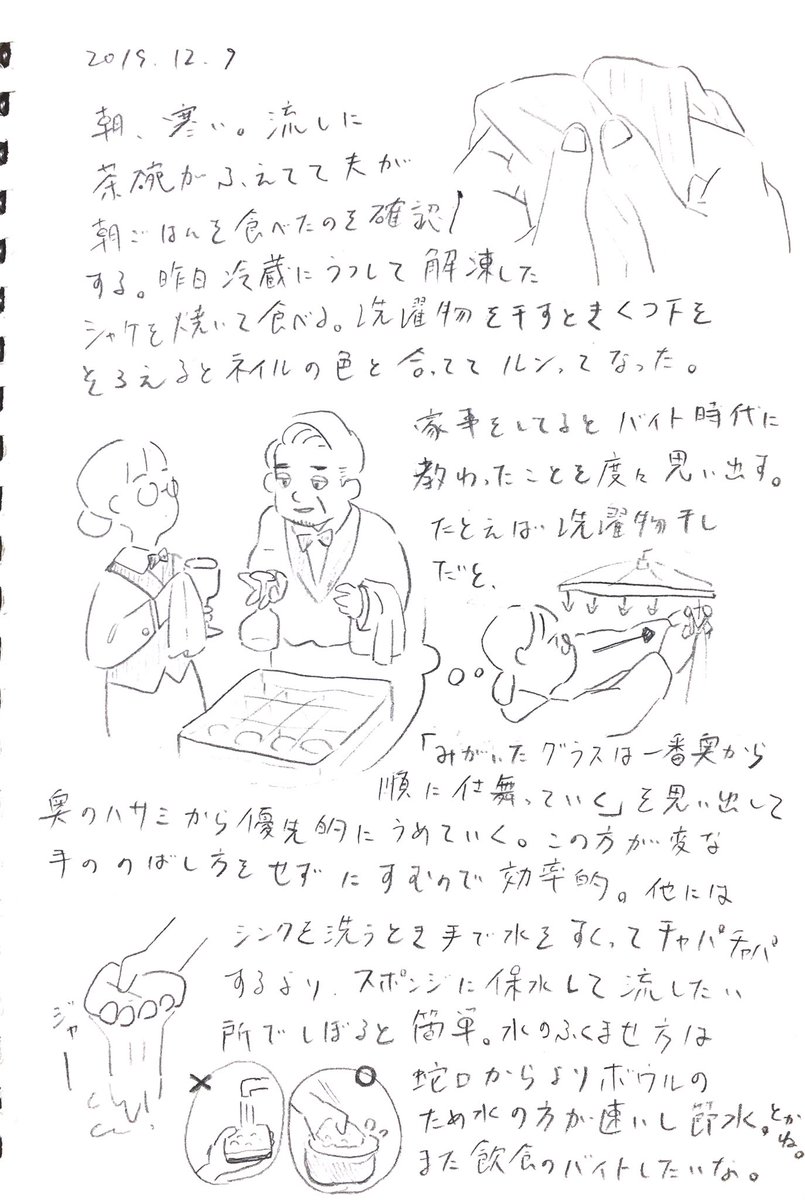 2019.12.9
朝、寒い。流しに
茶碗がふえてて夫が
朝ごはんを食べたのを確認
する。昨日冷蔵にうつして解凍した
シャケを焼いて食べる。洗濯物を干すときくつ下を
そろえるとネイルの色と合ってて ルンってなった。
家事をしてるとバイト時代に
教わったことを度々思い出す。
たとえば洗濯物干し
だと、
「みがいたグラスは一番奥から
順に仕舞っていく」を思い出して
奥のハサミから優先的にうめていく。この方が変な
手ののばし方をせずにすむので効率的。他には
シンクを洗うとき手で水をすくってチャパチャパ
するより、スポンジに保水して流したい
所でしぼると簡単。水のふくませ方は
蛇口からよりボウルの
ため水の方が速いし節水。とかね。
また飲食のバイトしたいな。
ジャー
×
○